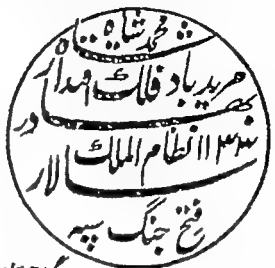 محمد شاه
هر یدباد فلک اقتدار
بهادر
۱۱۳۳ نظام الملک
سالار
فتح جنگ سپه